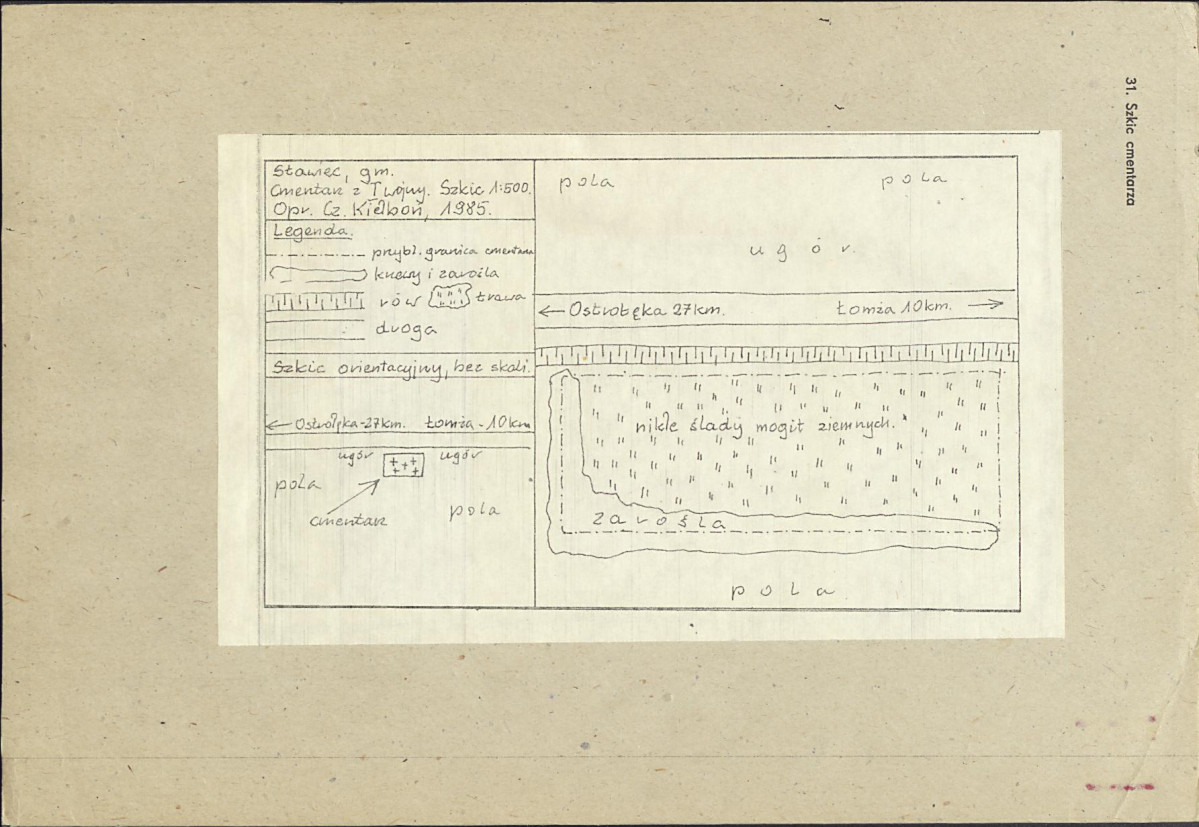 31. Szkic cmentarza
Stawiec, gm.
Cmentarz z I wojny. Szkic 1:500.
Opr. Cz. Kiełboń, 1985.
Legenda.
przybl. granica cmentarza
krzewy i zarośla
rów
trawa
droga
Szkic orientacyjny, bez skali.
← Ostrołęka - 27km. Łomża - 10km
ugór
ugór
pola
cmentarz
pola
pola
pola
ugór
← Ostrołęka 27km. Łomża 10km. →
nikłe ślady mogił ziemnych.
zarośla
pola